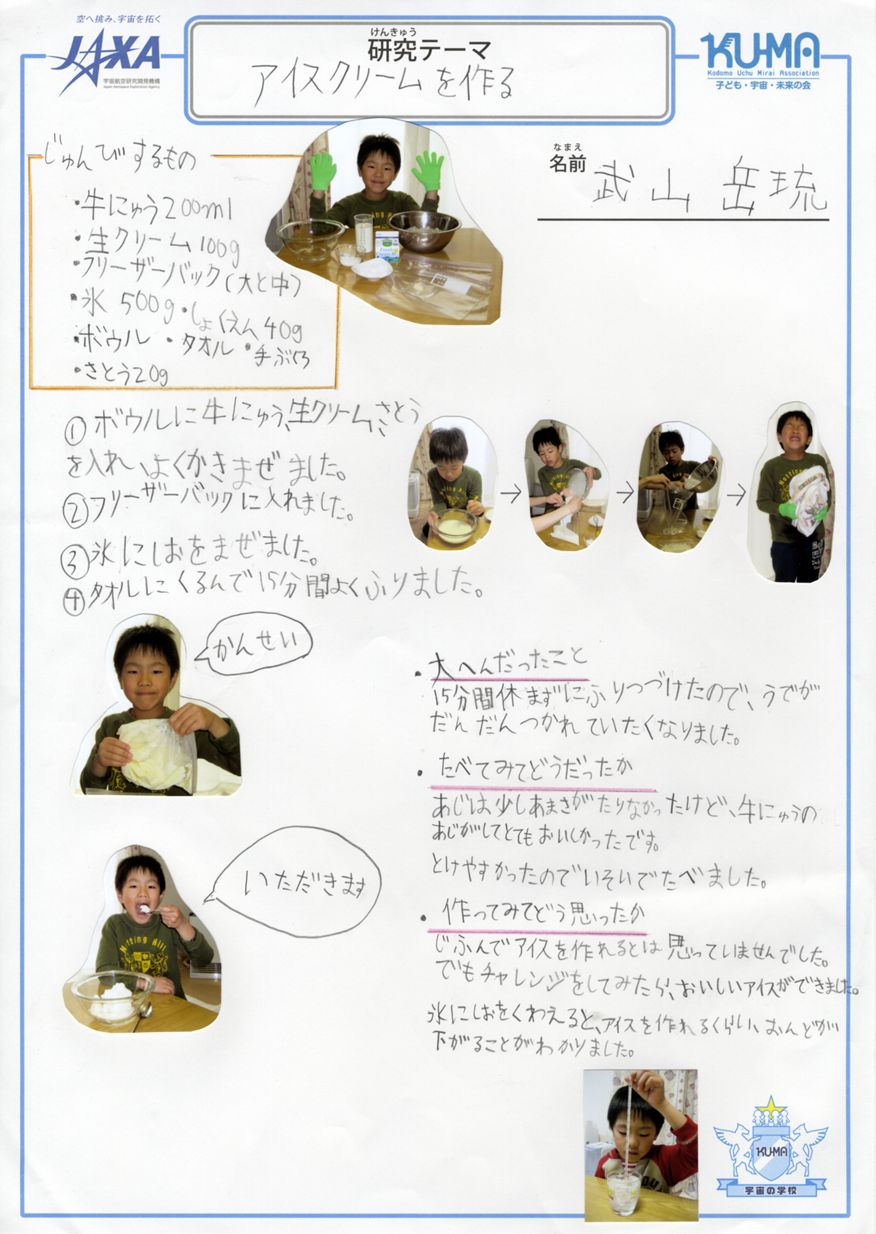 空へ挑み、宇宙を拓く
JAXA
宇宙航空研究開発機構
Japan Aerospace Exploration Agency
けんきゅう
研究テーマ
アイスクリームを作る
KU-MA
Kodomo Uchu Mirai Association
子ども・宇宙・未来の会
なまえ
名前
武山 岳琉
じゅんびするもの
・牛にゅう200ml
・生クリーム100g
・フリーザーバック(大と中)
・氷 500g ・しょくえん40g
・ボウル ・タオル ・手ぶくろ
・さとう20g
①ボウルに牛にゅう、生クリーム、さとう
を入れ、よくかきまぜました。
②フリーザーバックに入れました。
③氷にしおをまぜました。
④タオルにくるんで15分間よくふりました。
→ → →
かんせい
いただきます
・大へんだったこと
15分間休まずにふりつづけたので、うでが
だんだんつかれていたくなりました。
・たべてみてどうだったか
あじは少しあまさがたりなかったけど、牛にゅうの
あじがしてとてもおいしかったです。
とけやすかったのでいそいでたべました。
・作ってみてどう思ったか
じふんでアイスを作れるとは思っていませんでした。
でもチャレンジをしてみたら、おいしいアイスができました。
氷にしおをくわえると、アイスを作れるくらい、おんどが
下がることがわかりました。
KU-MA
宇宙の学校